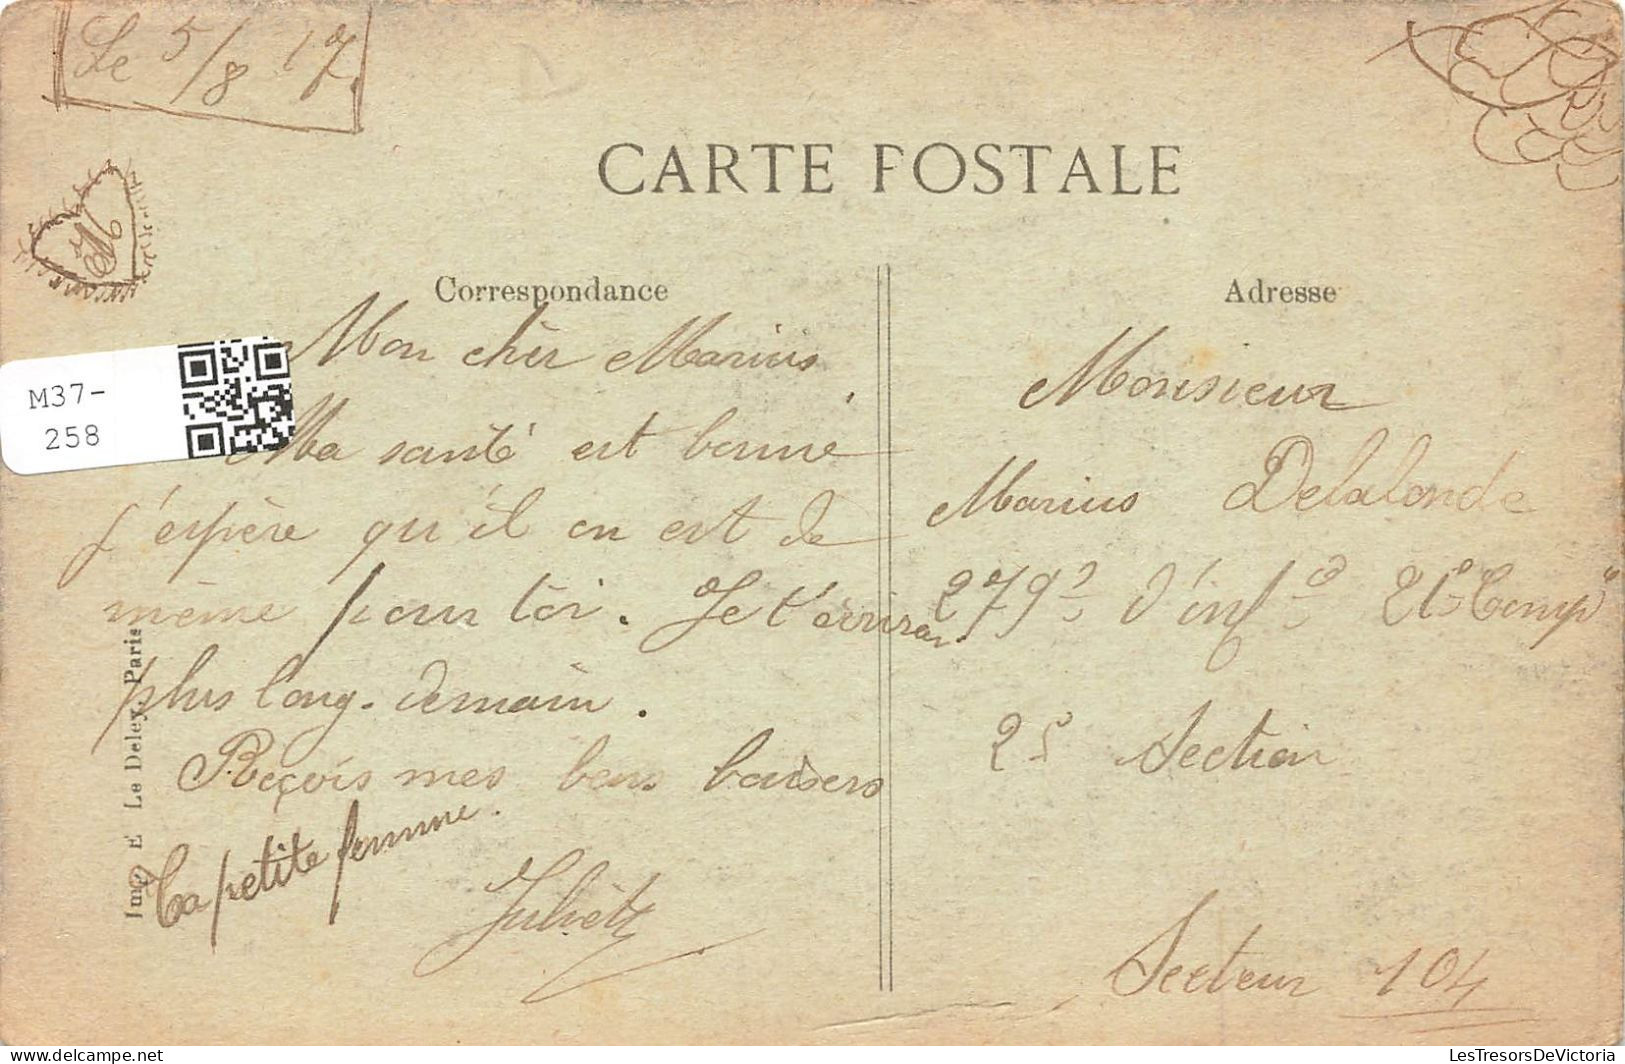 Le 5/8 17.
CARTE POSTALE
Correspondance
Mon chèr Marius
Ma santé est bonne
j'espère qu'il en est de
même pour toi. Je t'ecrirai
plus long. demain.
Reçois mes bons baisers
Ta petite femme.
Juliette
Adresse
Monsieur
Marius Delalonde
279e d'infie 21e Comp
25 Section
Secteur 104
Imp E Le Deley, Paris
M37-
258
LesTresorsDeVictoria
delcampe.net
LesTresorsDeVictoria